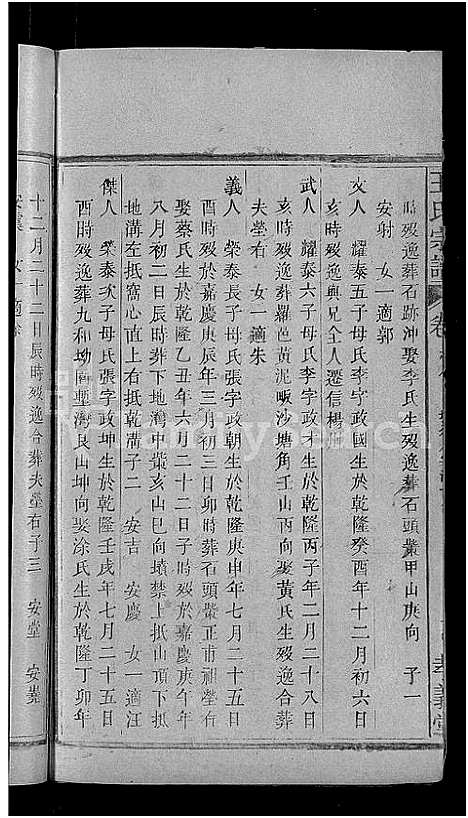 王氏宗譜 卷 孝義堂
時歿逸葬石跡沖娶李氏生歿逸葬石頭叢甲山庚向 子一
安射 女一適郭
文人 耀泰五子母氏李字政國生於乾隆癸酉年十二月初六日
亥時歿逸與兄全人遷信楊
武人 耀泰六子母氏李字政才生於乾隆丙子年二月二十八日
亥時歿逸葬羅邑黃泥畈沙塘角壬山丙向娶黃氏生歿逸合葬
夫塋右 女一適朱
義人 榮泰長子母氏張字政朝生於乾隆庚申年七月二十五日
酉時歿於嘉慶庚辰年三月初三日卯時葬石頭叢正甫祖塋右
娶蔡氏生於乾隆乙丑年六月二十二日子時歿於嘉慶庚午年
八月初二日辰時葬下地灣中叢亥山巳向墳禁上抵山頂下抵
地溝左抵窩心直上右抵乾溝子二 安吉 安慶 女一適汪
傑人 榮泰次子母氏張字政坤生於乾隆壬戌年七月二十五日
酉時歿逸葬九種坳灣艮山坤向娶涂氏生於乾隆丁卯年
十二月二十二日辰時歿逸合葬夫塋右子三 安堂 安堯
女一適涂
FamilySearch